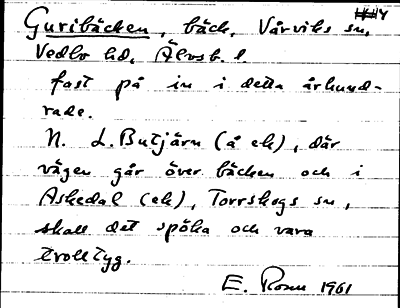 Guribäcken, bäck, Vårviks sn,
Vedbo hd, Älvsb. l.
fast på in i detta århund-
rade.
N. L. Butjärn (å ek), där
vägen går över bäcken och i
Askedal (ek), Torrskogs sn,
skall det spöka och vara
trolltyg.
E. Rosm 1961